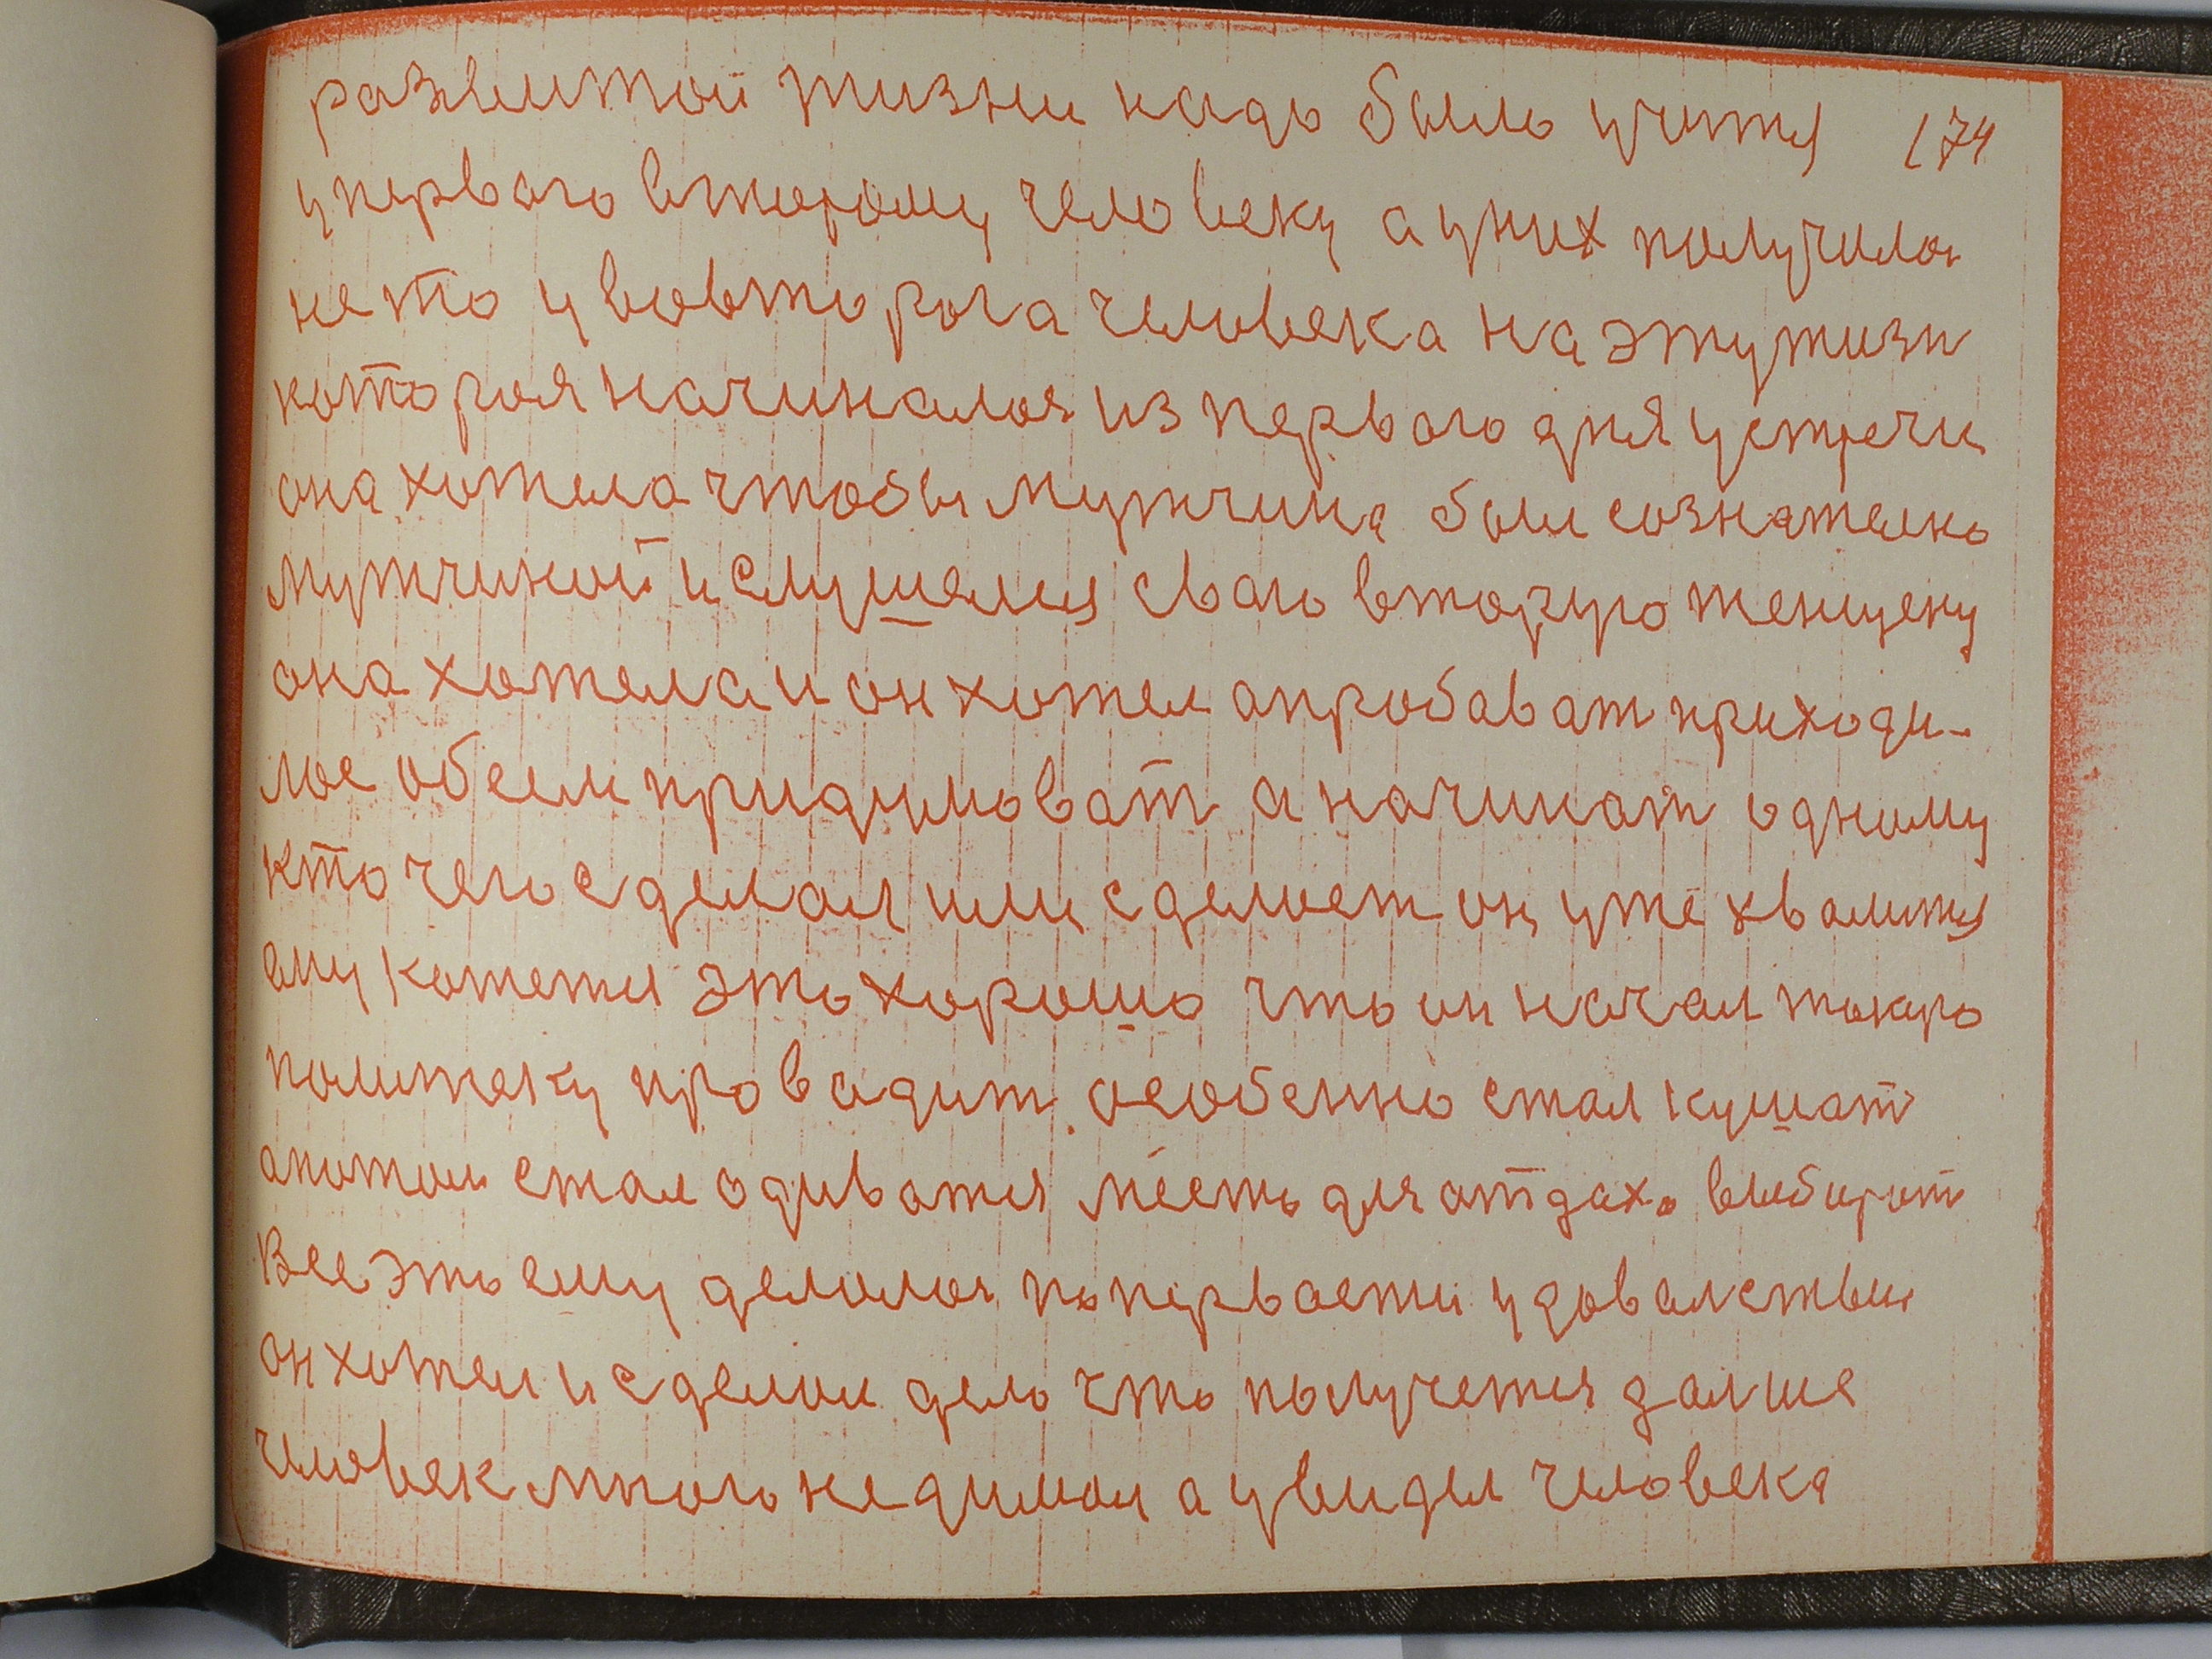 развитой жизни надо было учится 174
у первого второму человеку а у них получилос
не то у вовторога человека на эту жизн
котороя начиналос из первого дня устречи
она хотела чтобы мужчина был сознателно
мужчиной и слушался сваго вторую женщену
она хотела и он хотел апробават приходи-
лос обеем придумоват а начинат одному
кто чего сделал или сделоет он уже хвалится
ему кажется это хорошо что он начал такую
политеку провадит особенно стал кушат
апотом стал одиватся место для отдаха выбират
Все это ему делолос по первости удавалствы
он хотел и сделол дело что получется далше
человек много не думал а увидел человека